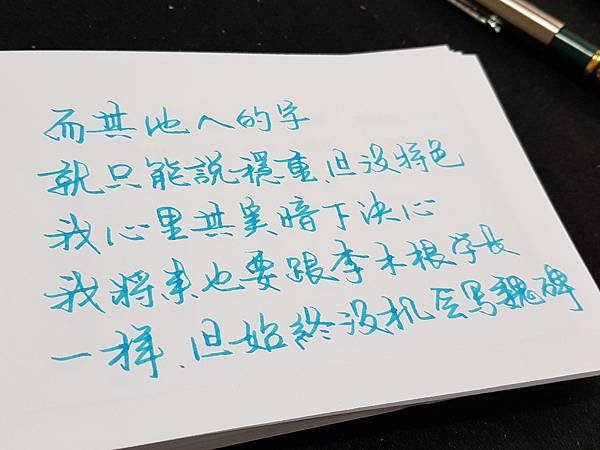 而其他人的字
就只能說穩重、但没特色
我心里其實暗下决心
我將来也要跟李木根学长
一样、但始終没机会写魏碑